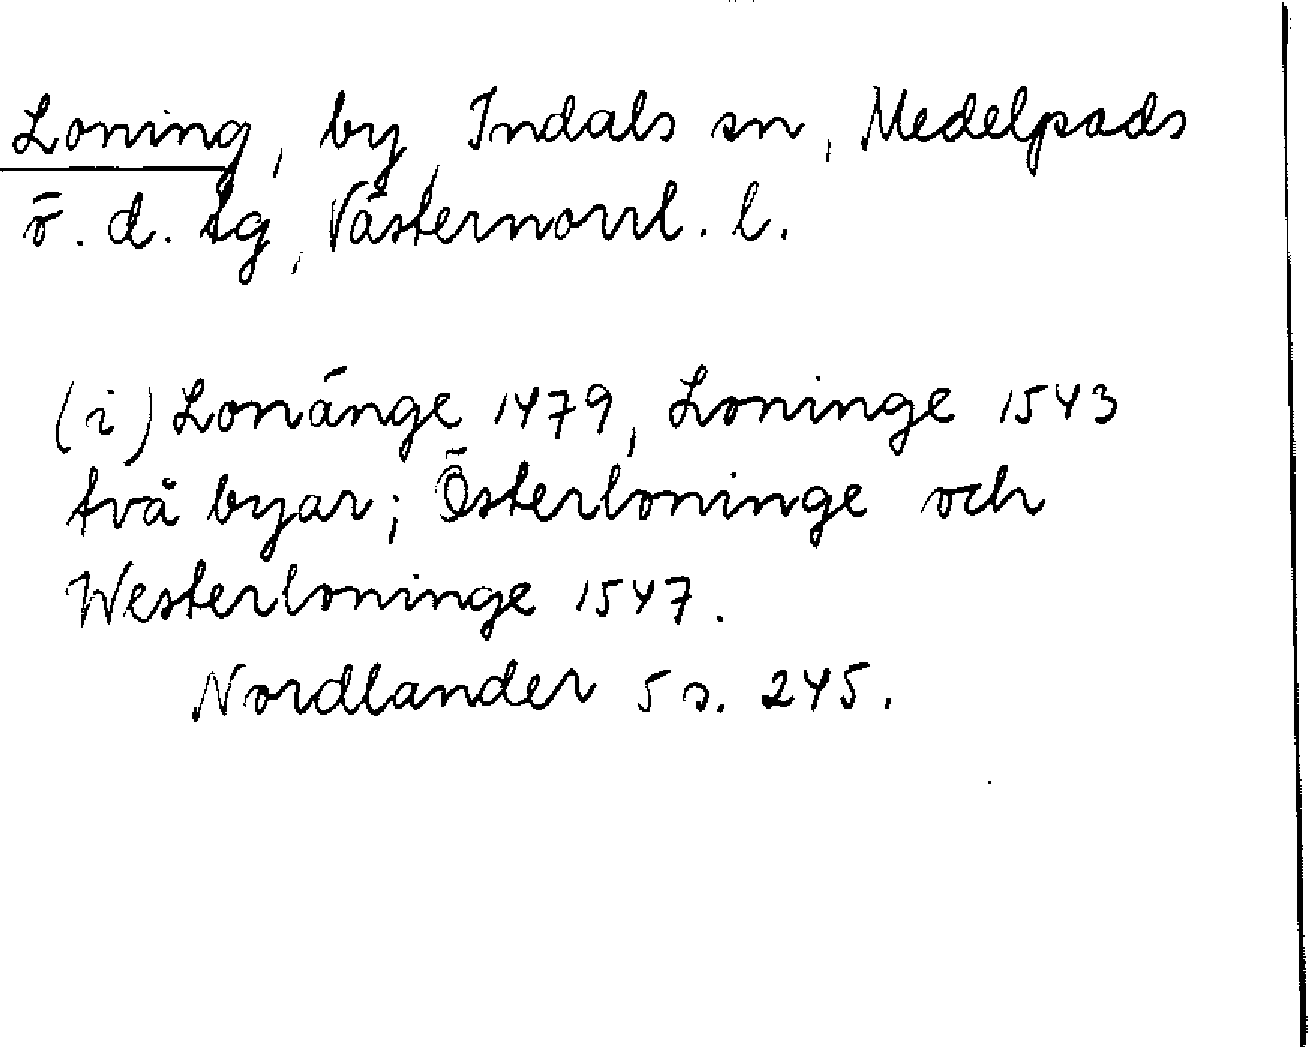 Loning, by, Indals sn, Medelpads
ö. d. tg, Västernorrl. l.
(i) Lonänge 1479, Loninge 1543
två byar; Österloninge och
Westerloninge 1547.
Nordlander 5 s. 245.